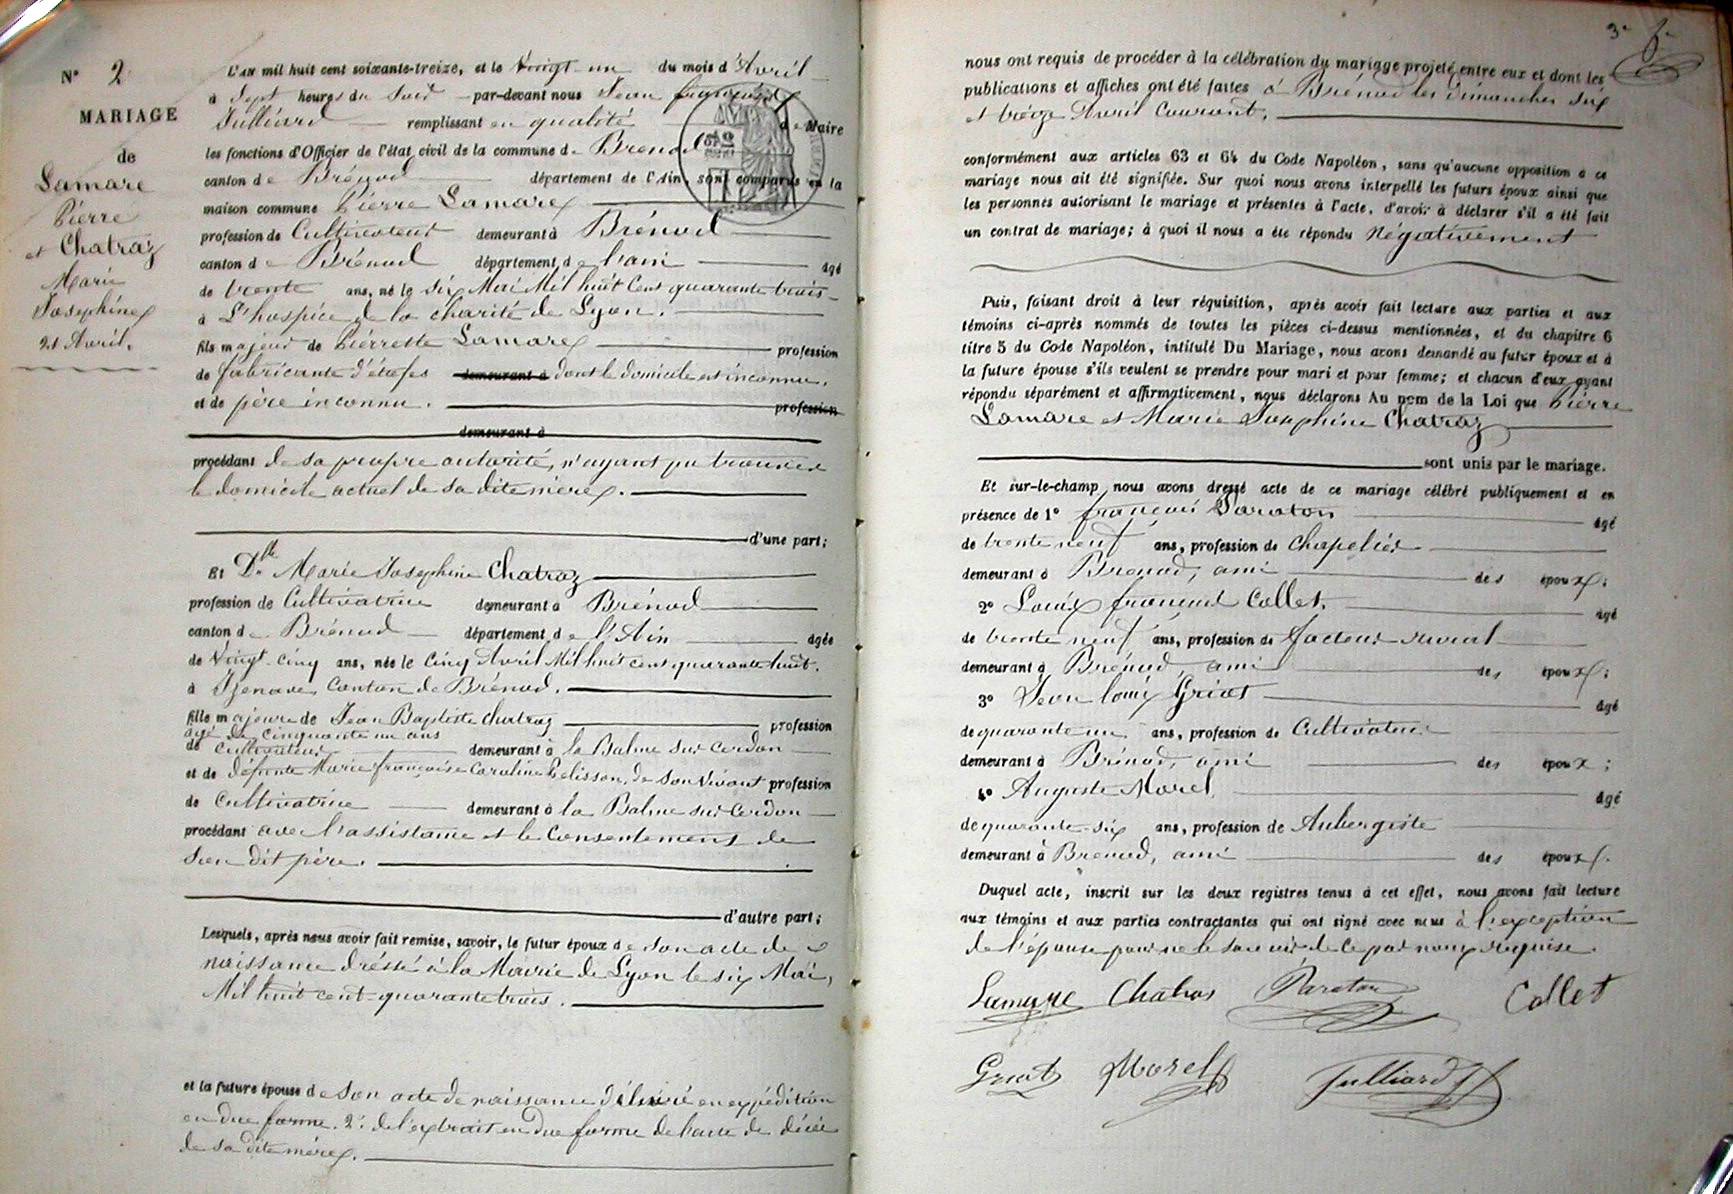 N° 2
MARIAGE
de
Lamare
Pierre
et Chatraz
Marie
Josephine
21 Avril.
L'an mil huit cent soixante-treize, et le Vingt-un du mois d'Avril
à Sept heures du Soir par-devant nous Jean françois
Julliard remplissant en qualité de Maire
les fonctions d'Officier de l'état civil de la commune de Brénod
canton de Brénod département de l'Ain sont comparus en la
maison commune Pierre Lamare
profession de Cultivateur demeurant à Brénod
canton de Brénod département de l'ain âgé
de trente ans, né le Six Mai Mil huit Cent quarante trois
à L'hospice de la charité de Lyon.
fils majeur de Pierrette Lamare profession
de fabricante d'étofes demeurant à dont le domicile est inconnu.
et de père inconnu. profession
demeurant à
procédant de sa propre autorité, n'ayant pu trouver
le domicile actuel de sa dite mère.
d'une part;
Et Dlle Marie Josephine Chatraz
profession de Cultivatrice demeurant à Brénod
canton de Brénod département de l'Ain âgée
de Vingt-cinq ans, née le Cinq Avril Mil huit cent quarante huit.
à Izenave, Canton de Brénod.
fille majeure de Jean Baptiste Chatraz profession
agé de cinquante un ans
de cultivateur demeurant à la Balme sur Cerdon
et de défunte Marie françoise Caroline Pelisson, de son vivant profession
de Cultivatrice demeurant à la Balme sur Cerdon
procédant avec l'assistance et le Consentement de
son dit père.
d'autre part;
Lesquels, après nous avoir fait remise, savoir, le futur époux de son acte de
naissance dréssé à la Mairie de Lyon le six Mai,
Mil huit cent-quarante trois.
et la future épouse de son acte de naissance délivré en expédition
en due forme. 2° de l'extrait en due forme de l'acte de décès
de sa dite mère.
3
nous ont requis de procéder à la célébration du mariage projeté entre eux et dont les
publications et affiches ont été faites à Brénod les dimanches Six
et treize Avril Courant.
conformément aux articles 63 et 64 du Code Napoléon, sans qu'aucune opposition à ce
mariage nous ait été signifiée. Sur quoi nous avons interpellé les futurs époux ainsi que
les personnes autorisant le mariage et présentes à l'acte, d'avoir à déclarer s'il a été fait
un contrat de mariage; à quoi il nous a été répondu Négativement
Puis, faisant droit à leur réquisition, après avoir fait lecture aux parties et aux
témoins ci-après nommés de toutes les pièces ci-dessus mentionnées, et du chapitre 6
titre 5 du Code Napoléon, intitulé Du Mariage, nous avons demandé au futur époux et à
la future épouse s'ils veulent se prendre pour mari et pour femme; et chacun d'eux ayant
répondu séparément et affirmativement, nous déclarons Au nom de la Loi que Pierre
Lamare et Marie Josephine Chatraz
sont unis par le mariage.
Et sur-le-champ nous avons dressé acte de ce mariage célébré publiquement et en
présence de 1° françois Paraton âgé
de trente neuf ans, profession de Chapelier
demeurant à Brénod, ami des époux;
2° Louis françois Collet. âgé
de trente neuf ans, profession de facteur rural
demeurant à Brénod, ami des époux;
3° Jean Louis Griot âgé
de quarante un ans, profession de Cultivateur
demeurant à Brénod, ami des époux;
4° Auguste Morel âgé
de quarante-six ans, profession de Aubergiste
demeurant à Brénod, ami des époux.
Duquel acte, inscrit sur les deux registres tenus à cet effet, nous avons fait lecture
aux témoins et aux parties contractantes qui ont signé avec nous à l'exception
de l'épouse pour ne le savoir de ce par nous requise.
Lamare Chatras Paraton Collet
Griot Morel Julliard